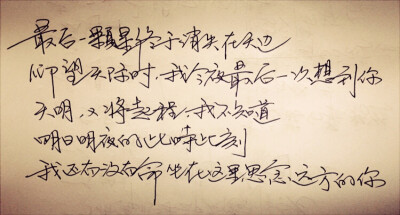 最后一颗星终于消失在天边
仰望天际时,我今夜最后一次想到你
天明,又将起程,我不知道
明日明夜的此時此刻
我还有没有命坐在这里思念远方的你